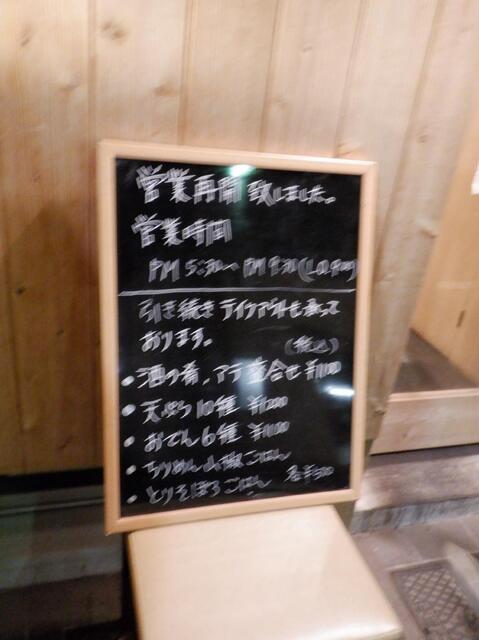 営業再開致しました。
営業時間
PM 5:30〜PM 9:30(L.O.
引き続きテイクアウトも承って
おります。
(税込)
・酒の肴、アテ盛合せ ¥1100
・天ぷら10種 ¥1200
・おでん6種 ¥1100
・ちりめん山椒ごはん
・とりそぼろごはん 各¥500